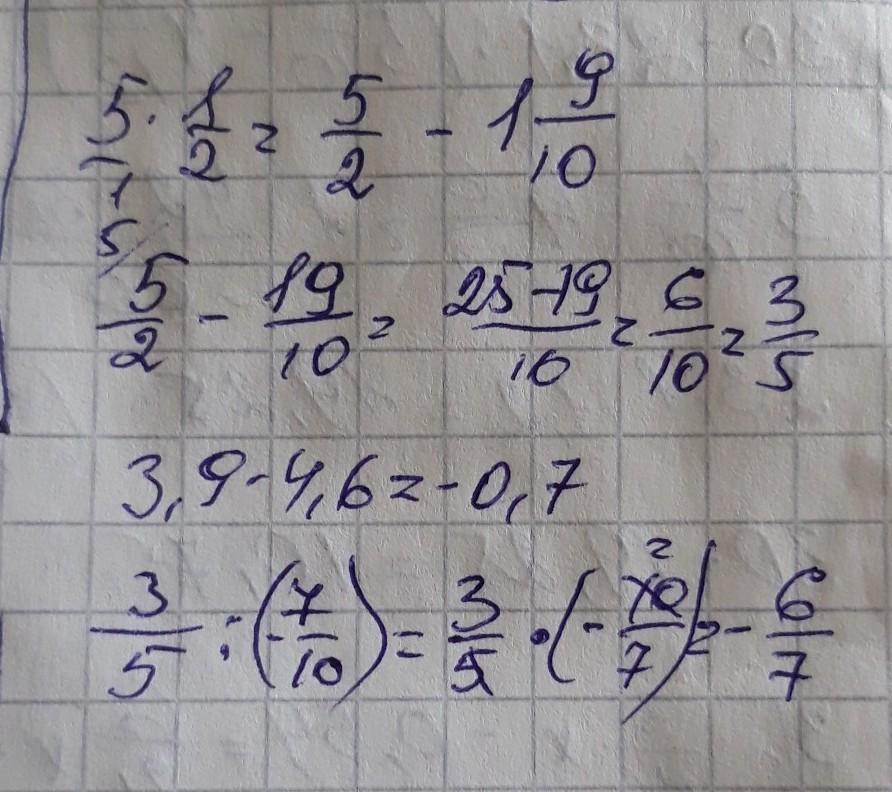 5/1 · 1/2 = 5/2 - 1 9/10
5/
5/2 - 19/10 = 25-19/10 = 6/10 = 3/5
3,9-4,6=-0,7
3/5 : (-7/10) = 3/5 · (-10/7) 2 = -6/7